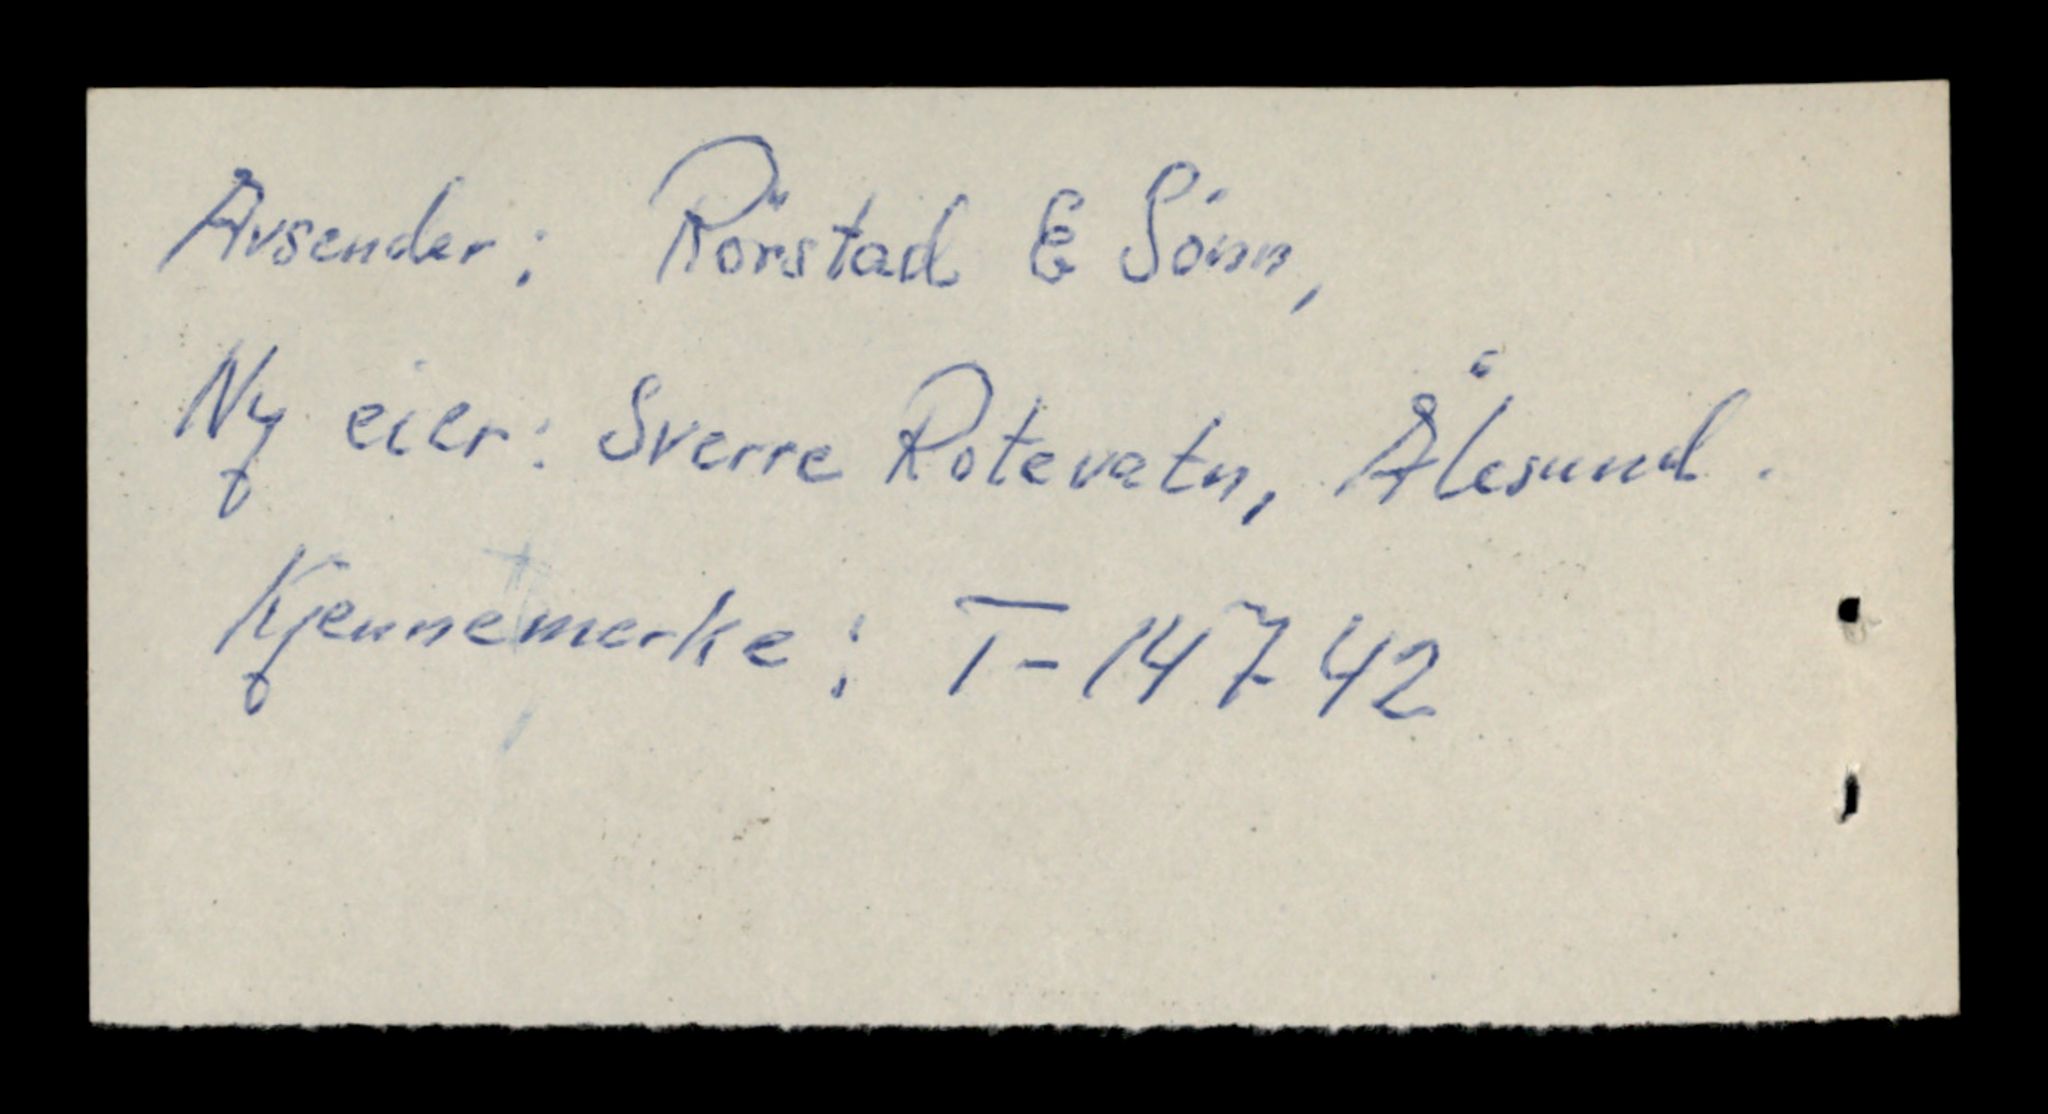 Avsender: Rörstad & Sónn,
Ny eier: Sverre Rotevatn, Ålesund.
Kjennemerke: T-14742